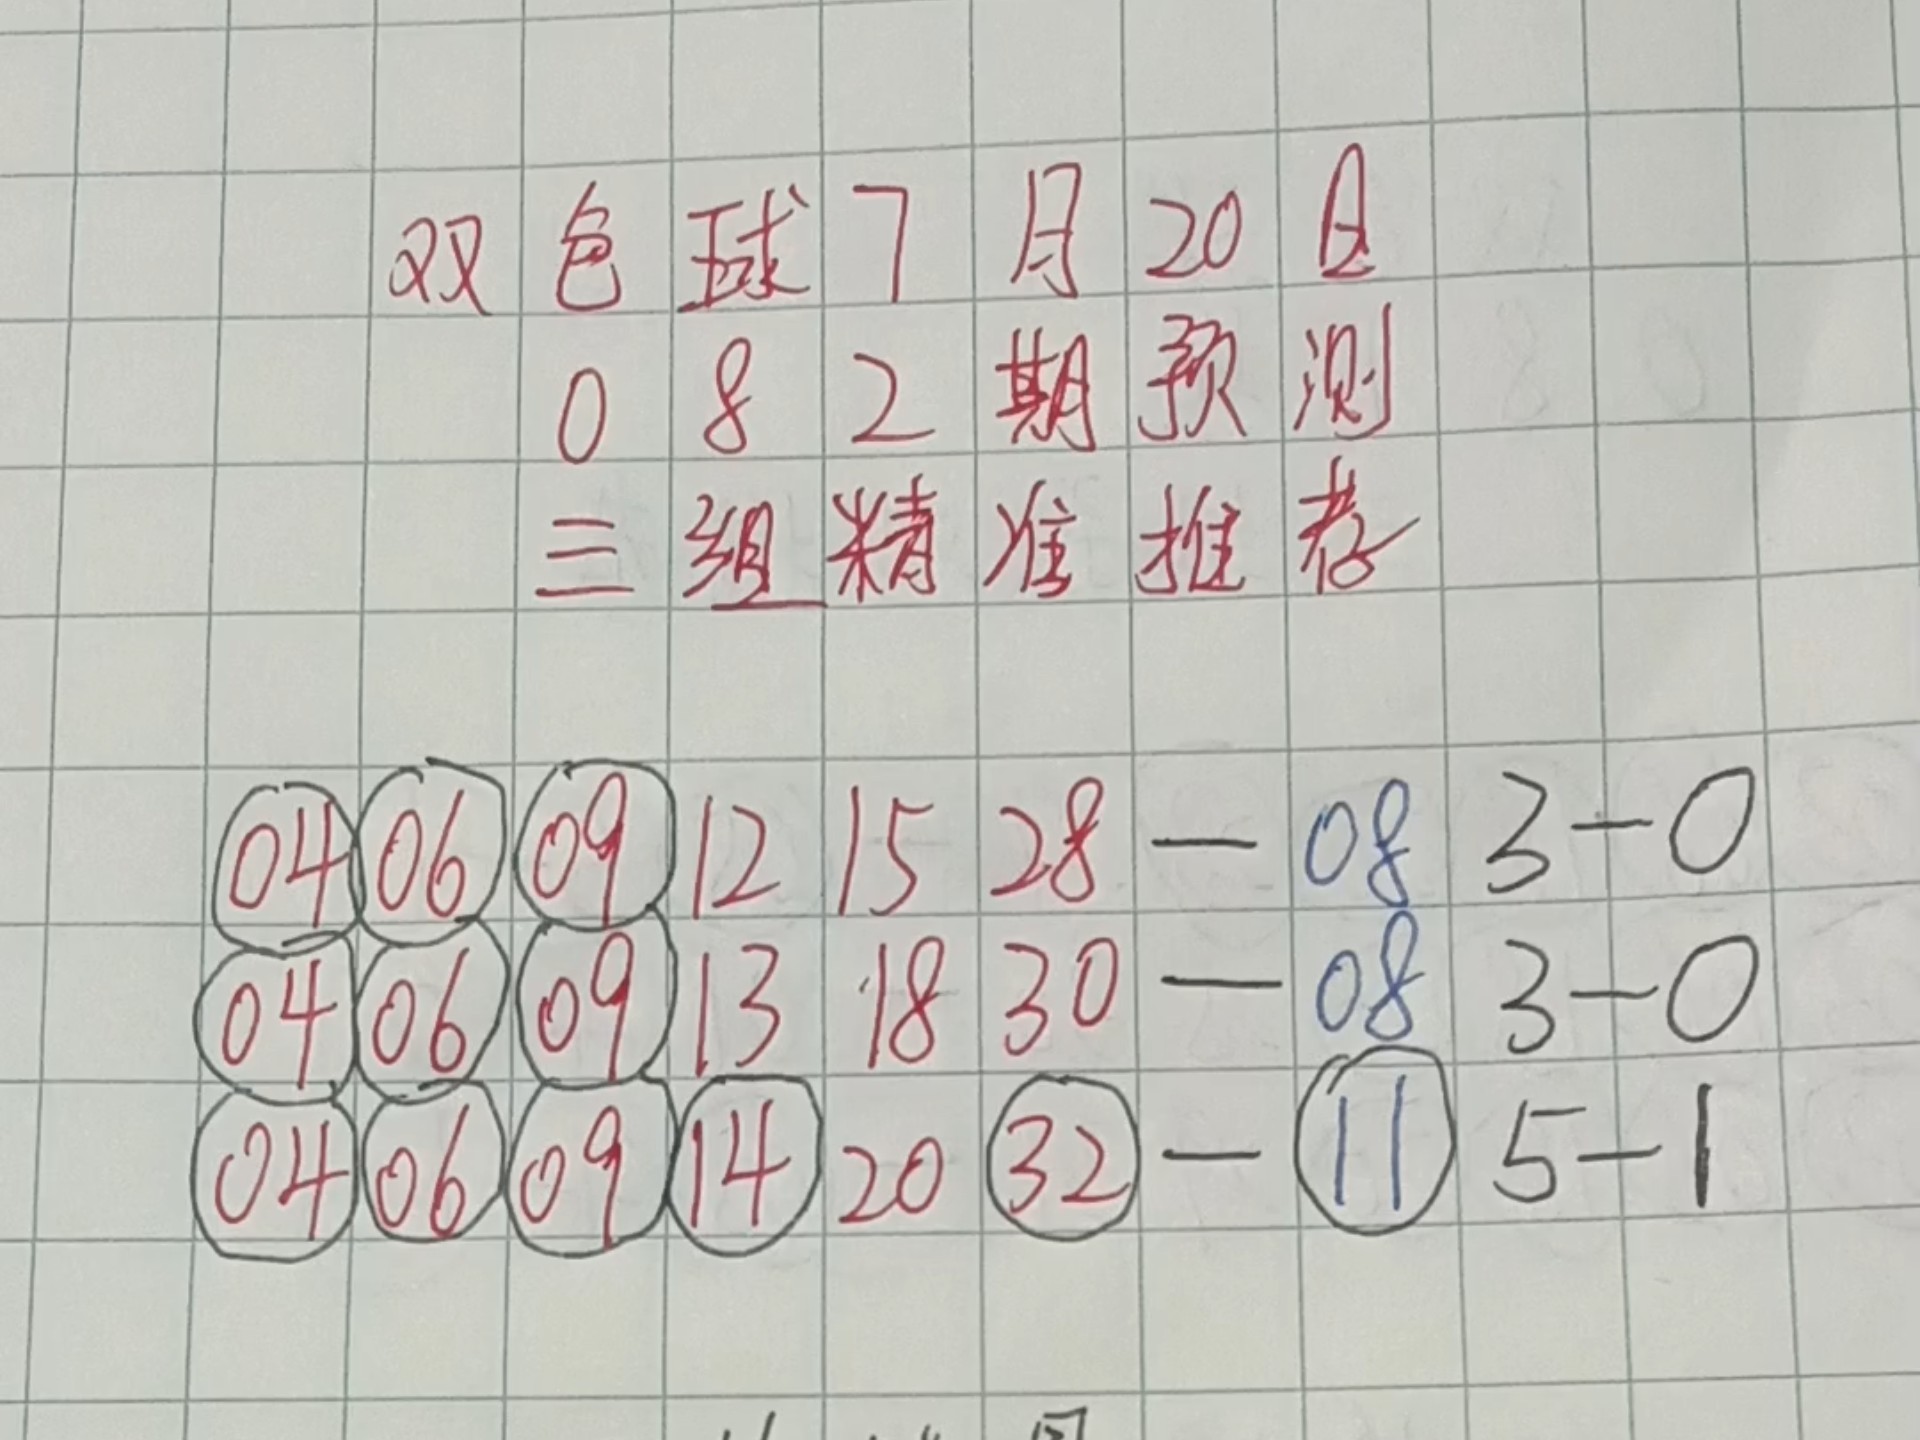 双色球7月20日
082期预测
三组精准推荐
04 06 09 12 15 28 — 08 3-0
04 06 09 13 18 30 — 08 3-0
04 06 09 14 20 32 — 11 5-1